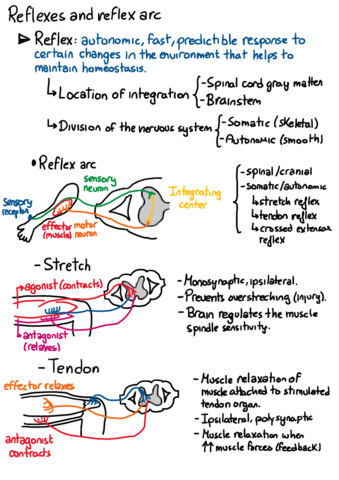 Reflexes and reflex arc
➤ Reflex: autonomic, fast, predictible response to
certain changes in the environment that helps to
maintain homeostasis.
↳ Location of integration
- Spinal cord gray matter
- Brainstem
↳ Division of the nervous system
- Somatic (skeletal)
- Autonomic (smooth)
• Reflex arc
sensory
neuron
sensory
receptor
effector
(muscle)
motor
neuron
Integrating
center
- spinal/cranial
- Somatic/autonomic
↳ stretch reflex
↳ tendon reflex
↳ crossed extensor
reflex
- Stretch
agonist (contracts)
antagonist
(relaxes)
- Monosynaptic, ipsilateral.
- Prevents overstreching (injury).
- Brain regulates the muscle
spindle sensitivity.
- Tendon
effector relaxes
antagonist
contracts
- Muscle relaxation of
muscle attached to stimulated
tendon organ.
- Ipsilateral, polysynaptic
- Muscle relaxation when
↑↑ muscle forces (feedback)